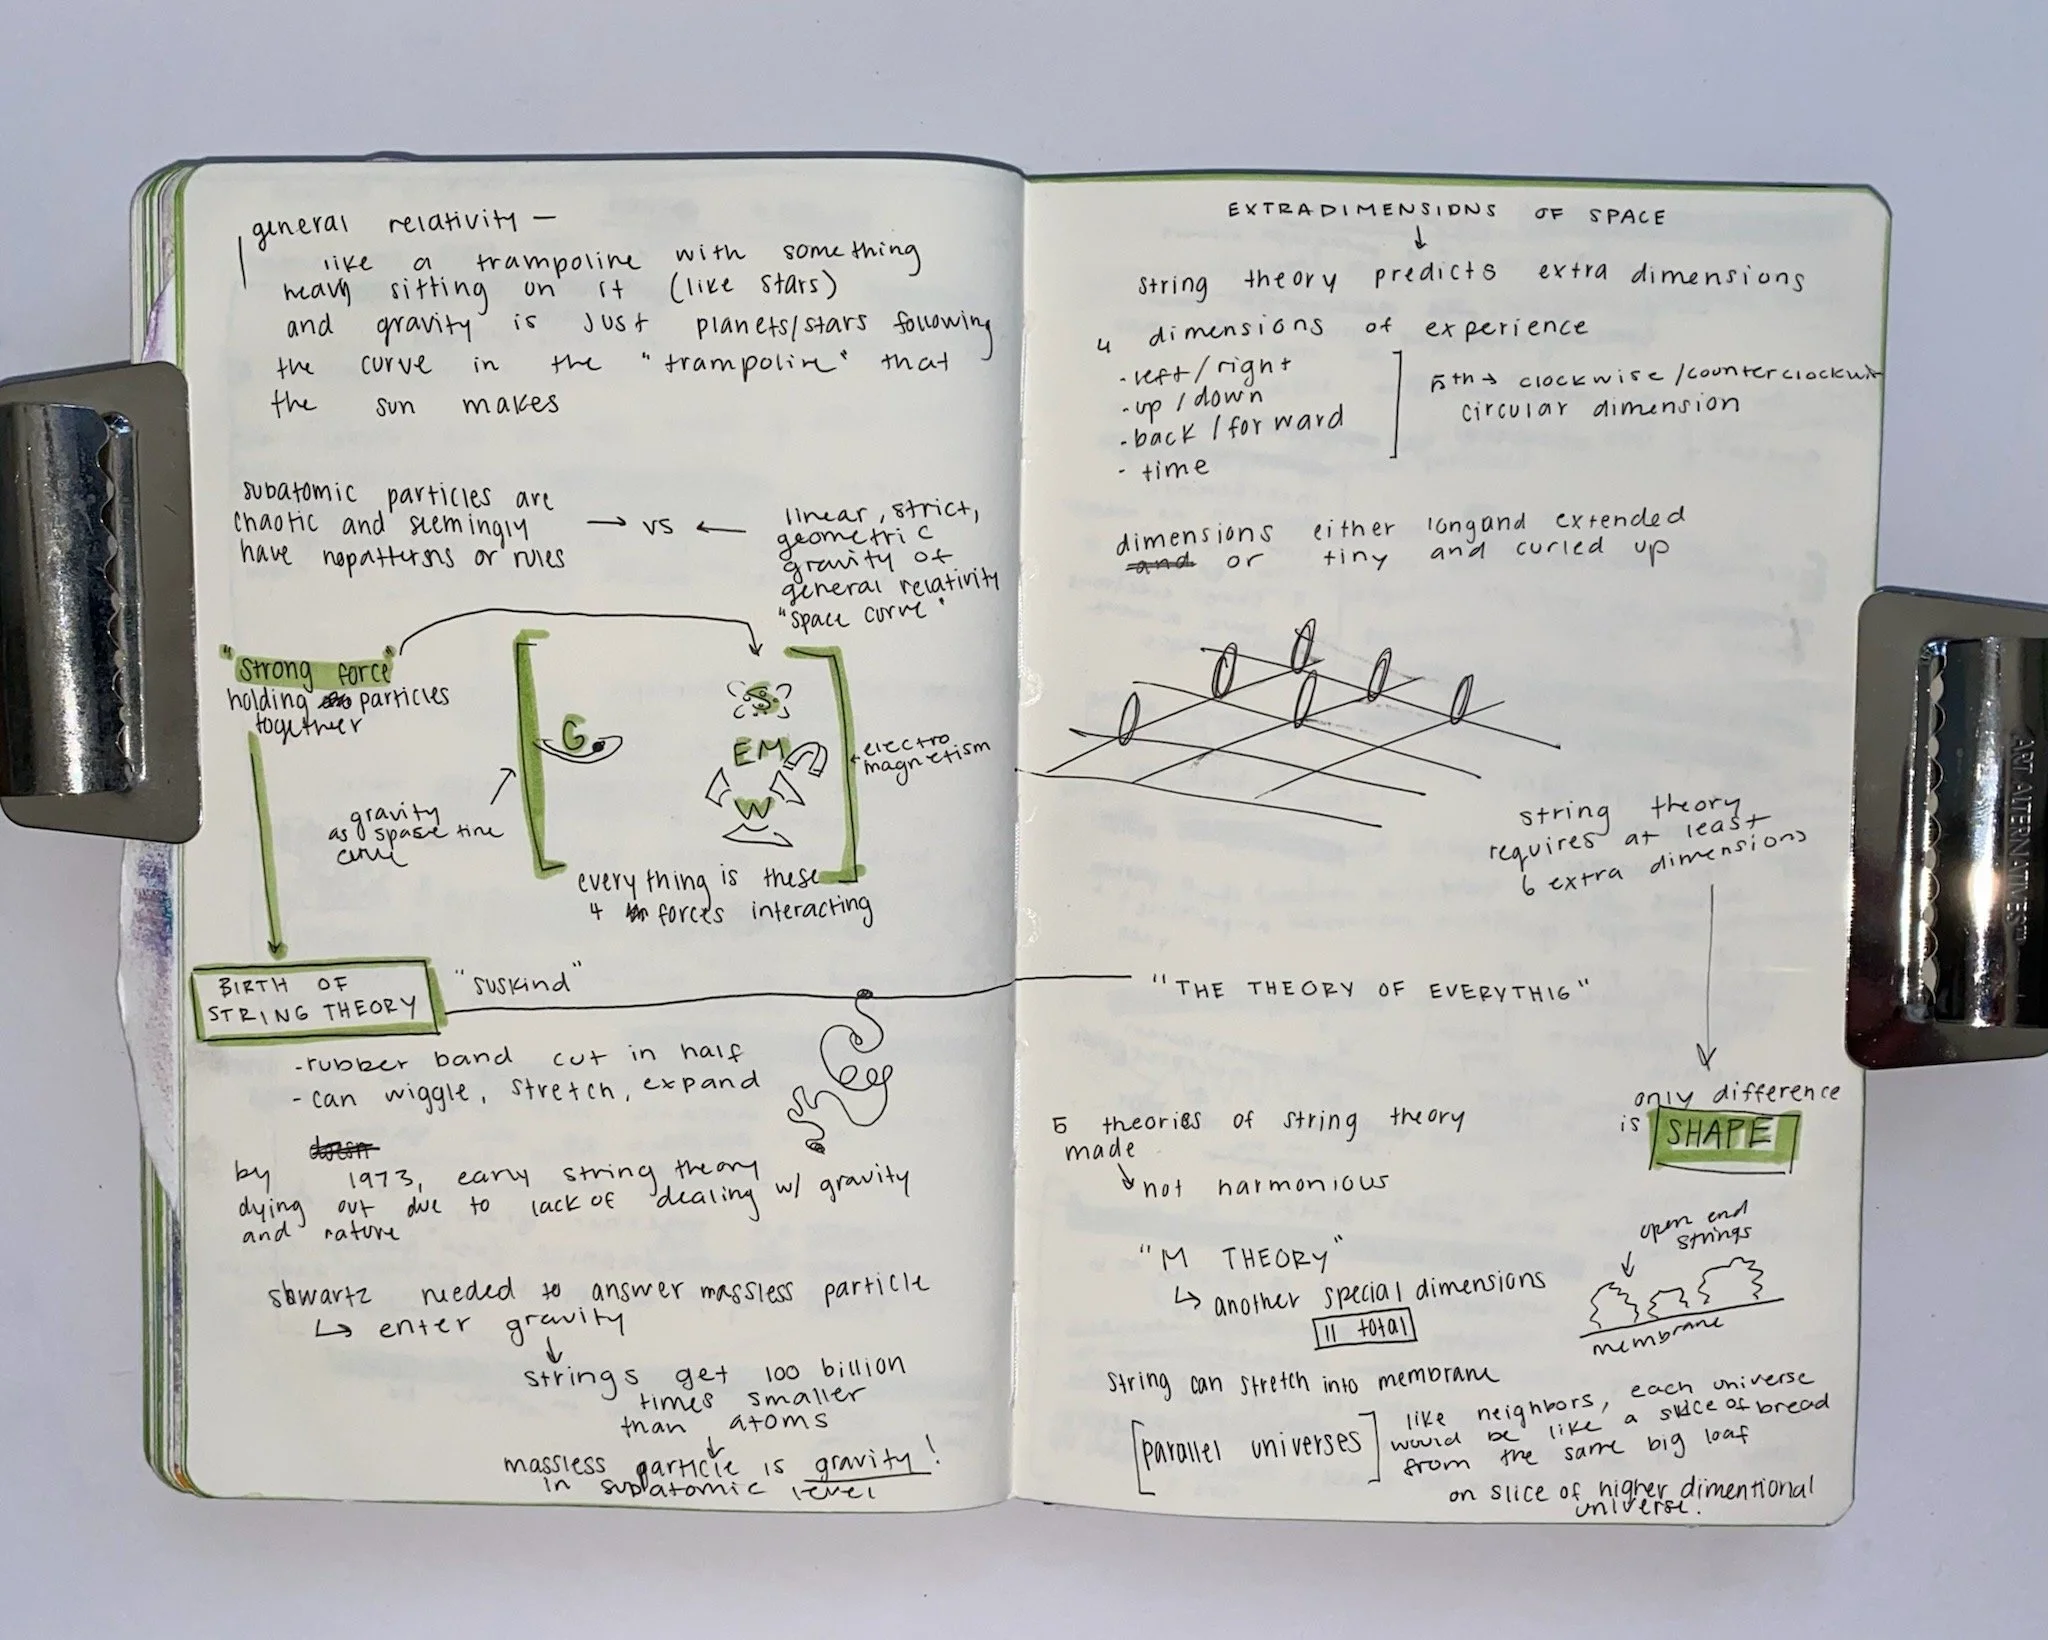 general relativity —
like a trampoline with something
heavy sitting on it (like stars)
and gravity is just planets/stars following
the curve in the "trampoline" that
the sun makes
subatomic particles are
chaotic and seemingly
have no patterns or rules
→ vs ←
linear, strict,
geometric
gravity of
general relativity
"space curve"
"strong force"
holding particles
together
G
S
EM
W
electro
magnetism
gravity
as space time
curve
everything is these
4 forces interacting
BIRTH OF
STRING THEORY
"suskind"
-rubber band cut in half
- can wiggle, stretch, expand
doesn
by 1973, early string theory
dying out due to lack of dealing w/ gravity
and nature
needed to answer massless particle
↳ enter gravity
strings get 100 billion
times smaller
than atoms
massless particle is gravity!
in subatomic level
EXTRADIMENSIONS OF SPACE
string theory predicts extra dimensions
4 dimensions of experience
- left/right
- up/down
- back/forward
- time
5th → clockwise/counterclockwi
circular dimension
dimensions either long and extended
and or tiny and curled up
string theory
requires at least
6 extra dimensions
"THE THEORY OF EVERYTHIG"
only difference
is SHAPE
5 theories of string theory
made
not harmonious
"M THEORY"
↳ another special dimensions
11 total
open end
strings
membrane
string can stretch into membrane
[parallel universes]
like neighbors, each universe
would be like a slice of bread
from the same big loaf
on slice of higher dimentional
universe.
ART ALTERNATIVES